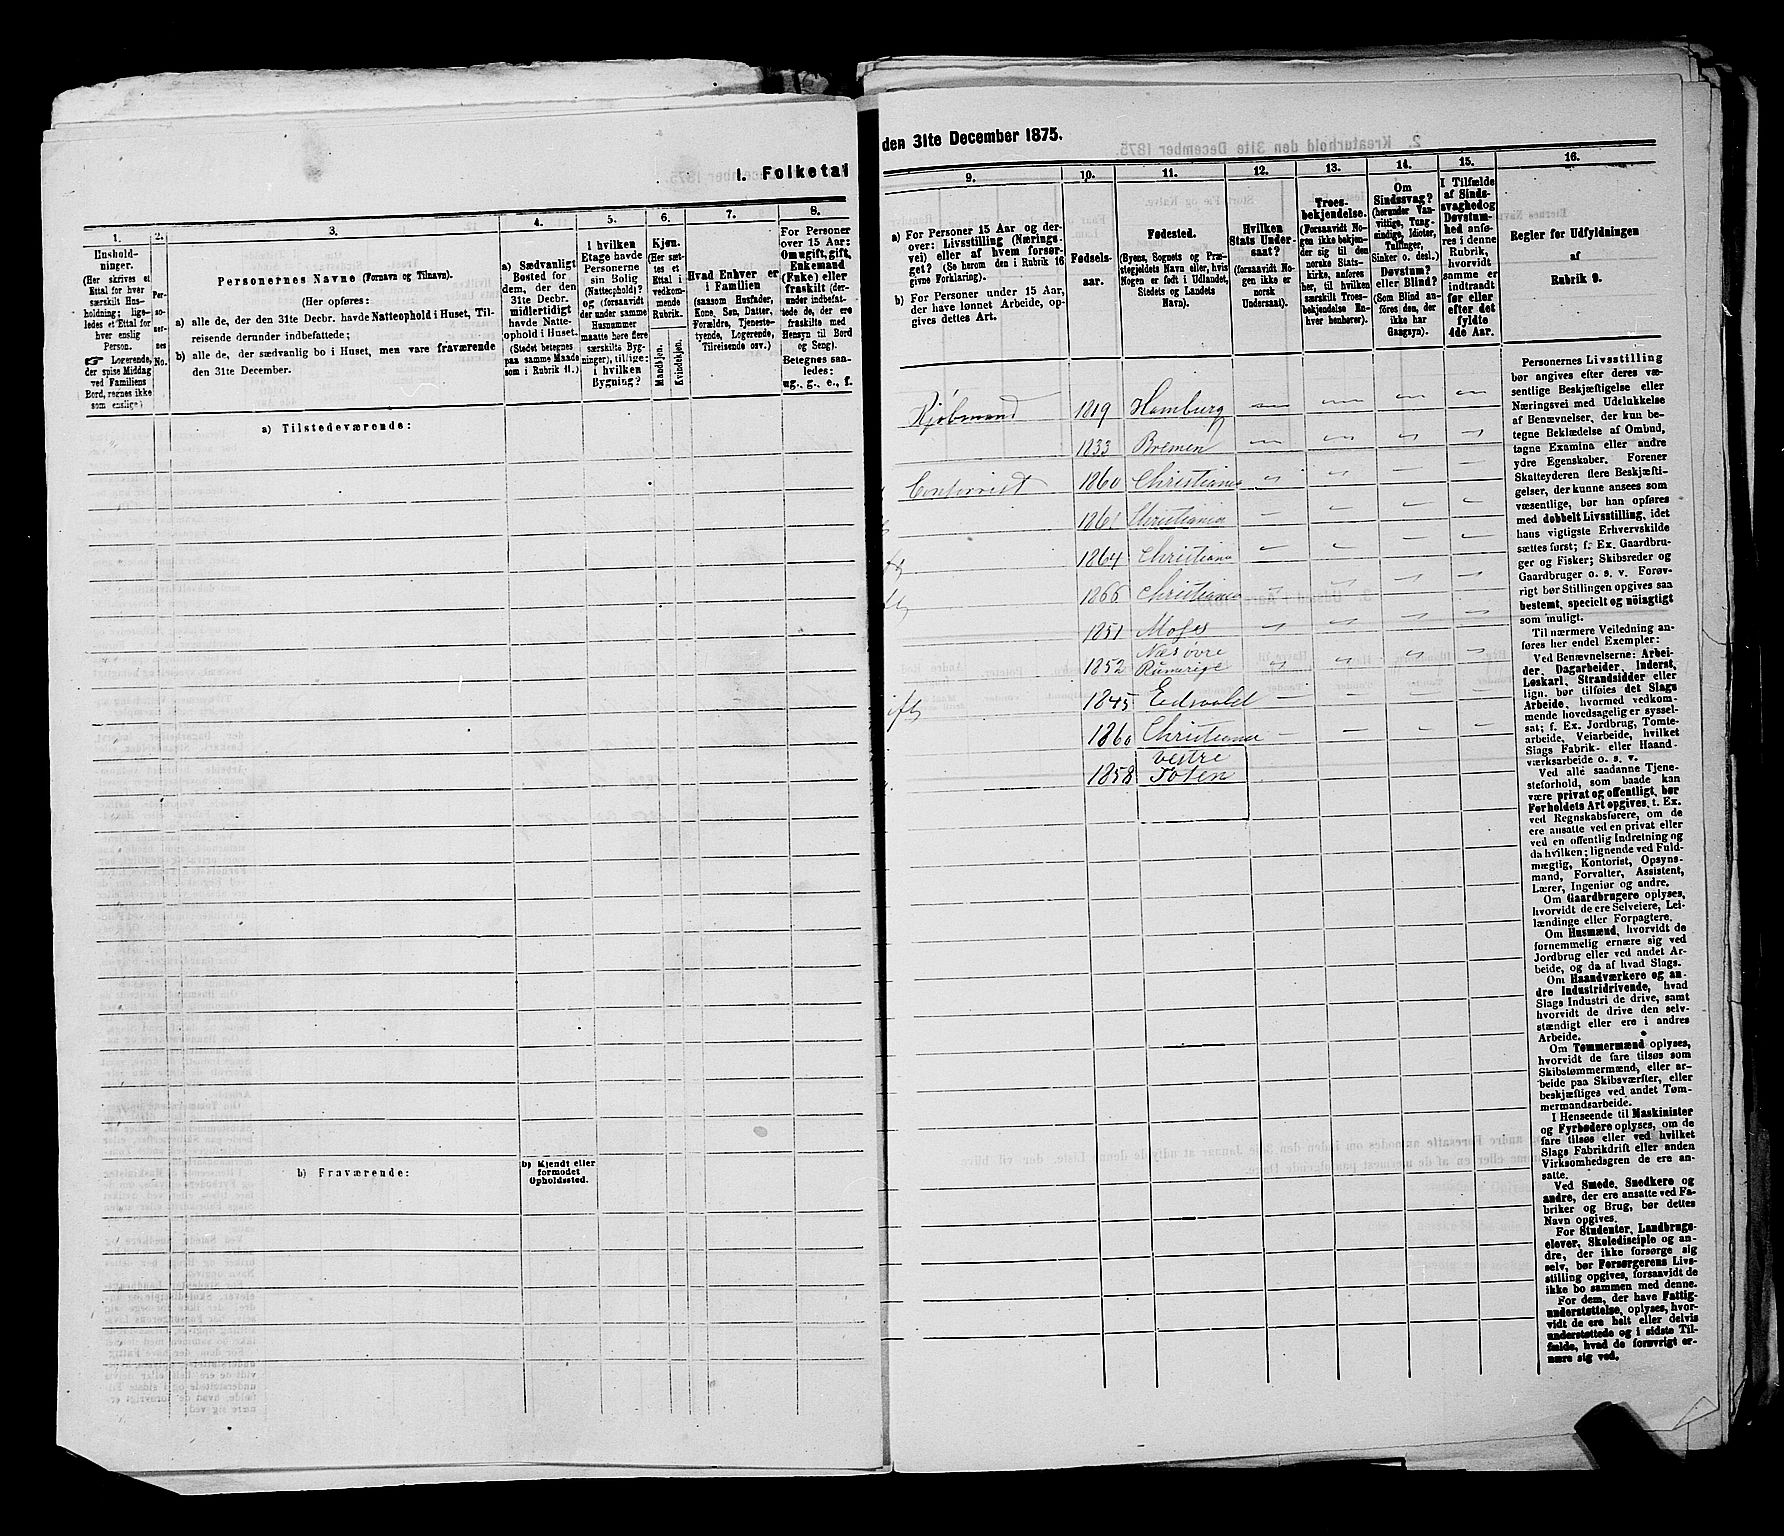 I. Folketal
1.
2.
3.
4.
5.
6.
7.
8.
Husholdninger.
(Her skrives et
Ettal for hver
særskilt Husholdning; ligeledes et Ettal for
hver enslig
Person.
☞ Logerende,
der spise Middag
ved Familiens
Bord, regnes ikke
som enslige)
Personernes No.
Personernes Navne (Fornavn og Tilnavn).
(Her opføres:
a) alle de, der den 31te Decbr. havde Natteophold i Huset, Tilreisende derunder indbefattede;
b) alle de, der sædvanlig bo i Huset, men vare fraværende
den 31te December.
a) Sædvanligt
Bosted for
dem, der den
31te Decbr.
midlertidigt
havde Natteophold i Huset.
(Stedet betegnes
paa samme Maade
som i Rubrik 11.)
I hvilken
Etage havde
Personerne
sin Bolig
(Natteophold)?
og (forsaavidt
der under samme
Husnummer
maatte høre flere
særskilte Bygninger), tillige:
i hvilken
Bygning?
Kjøn.
(Her sættes et
Ettal i
vedkommende
Rubrik.
Mandkjøn.
Kvindekjøn.
Hvad Enhver er
i Familien
(saasom Husfader,
Kone, Søn, Datter,
Forældre, Tjenestetyende, Logerende,
Tilreisende osv.)
For Personer
over 15 Aar:
Om ugift, gift,
Enkemand
(Enke) eller
fraskilt (derunder indbefattede, de, der ere
fraskilte med
Hensyn til Bord
og Seng).
Betegnes saaledes:
ug., g., e., f.
a) Tilstedeværende:
b) Fraværende:
b) Kjendt eller
formodet
Opholdssted.
den 31te December 1875.
9.
10.
11.
12.
13.
14.
15.
16.
a) For Personer 15 Aar og derover: Livsstilling (Næringsvei) eller af hvem forsørget? (Se herom den i Rubrik 16
givne Forklaring).
b) For Personer under 15 Aar,
der have lønnet Arbeide, opgives dettes Art.
Fødselsaar.
Fødested.
(Byens, Sognets og Præstegjeldets Navn eller, hvis
Nogen er født i Udlandet,
Stedets og Landets
Navn).
Hvilken
Stats Undersaat?
(forsaavidt Nogen ikke er
norsk
Undersaat).
Troesbekjendelse.
(Forsaavidt Nogen ikke bekjender sig til den
norske Statskirke, anføres
her, til hvilken
særskilt Troesbekjendelse Enhver henhører).
Om
Sindssvag?
(herunder Vanvittige, Tungsindige, Idioter,
Tullinger,
Sinker o. desl.)
Døvstum?
eller Blind?
(Som Blind anføres den, der
ikke har
Gangsyn).
I Tilfælde
af Sindssvaghed og
Døvstumhed anføres i denne
Rubrik,
hvorvidt
samme er
indtraadt
før eller
efter det
fyldte
4de Aar.
Regler for Udfyldningen
af
Rubrik 9.
Kjøbmand 1819 Hamburg
1833 Bremen
Contorrist 1860 Christiania
1861 Christiania
1864 Christiania
1866 Christiania
1851 Moss
1852 Næs øvre
Rumerige
1845 Eidsvold
1860 Christiania
1858 vestre
Toten
Personernes Livsstilling
bør angives efter deres væsentlige Beskjæftigelse eller
Næringsvei med Udelukkelse
af Benævnelser, der kun betegne Beklædelse af Ombud,
tagne Examina eller andre
ydre Egenskaber. Forener
Skatteyderen flere Beskjæftigelser, der kunne ansees som
væsentlige, bør han opføres
med dobbelt Livsstilling, idet
hans vigtigste Erhvervskilde
sættes først; f. Ex. Gaardbruger og Fisker; Skibsreder og
Gaardbruger o. s. v. Forøvrigt bør Stillingen opgives saa
bestemt, specielt og nøiagtigt
som muligt.
Til nærmere Veiledning anføres her endel Exempler:
Ved Benævnelserne: Arbeider, Dagarbeider, Inderst,
Løskarl, Strandsidder eller
lign. bør tilføies det Slags
Arbeide, hvormed vedkommende hovedsagelig er sysselsat; f. Ex. Jordbrug, Tomtearbeide, Veiarbeide, hvilket
Slags Fabrik- eller Haandværksarbeide o. s. v.
Ved alle saadanne Tjenesteforhold, som baade kan
være privat og offentligt, bør
Forholdets Art opgives, t. Ex.
ved Regnskabsførere, om de
ere ansatte ved en privat eller
ved en offentlig Indretning og
da hvilken; lignende ved Fuldmægtig, Kontorist, Opsynsmand, Forvalter, Assistent,
Lærer, Ingeniør og andre.
Om Gaardbrugere oplyses,
hvorvidt de ere Selveiere, Leilændinge eller Forpagtere.
Om Husmænd, hvorvidt de
fornemmelig ernære sig ved
Jordbrug eller ved andet Arbeide, og da af hvad Slags.
Om Haandværkere og andre Industridrivende, hvad
Slags Industri de drive, samt
hvorvidt de drive den selvstændigt eller ere i andres
Arbeide.
Om Tømmermænd oplyses,
hvorvidt de fare tilsøs som
Skibstømmermænd, eller arbeide paa Skibsværfter, eller
beskjæftiges ved andet Tømmermandsarbeide.
I Henseende til Maskinister
og Fyrbødere oplyses, om de
fare tilsøs eller ved hvilket
Slags Fabrikdrift eller anden
Virksomhedsgren de ere ansatte.
Ved Smede, Snedkere og
andre, der ere ansatte ved Fabriker og Brug, bør dettes
Navn opgives.
For Studenter, Landbrugselever, Skoledisciple og andre, der ikke forsørge sig
selv, bør Forsørgerens Livsstilling opgives, forsaavidt de
ikke bo sammen med denne.
For dem, der have Fattigunderstøttelse, oplyses, hvorvidt de ere helt eller delvis
understøttede og i sidste Tilfælde, hvad de forøvrigt ernære sig ved.